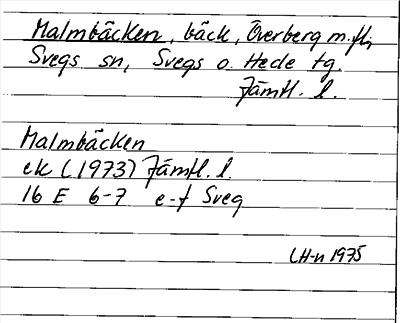 Malmbäcken, bäck, Överberg m.fl,
Svegs sn, Svegs o. Hede tg.
Jämtl. l.
Malmbäcken
ek (1973) Jämtl. l.
16 E 6-7 e-f Sveg
LH-n 1975